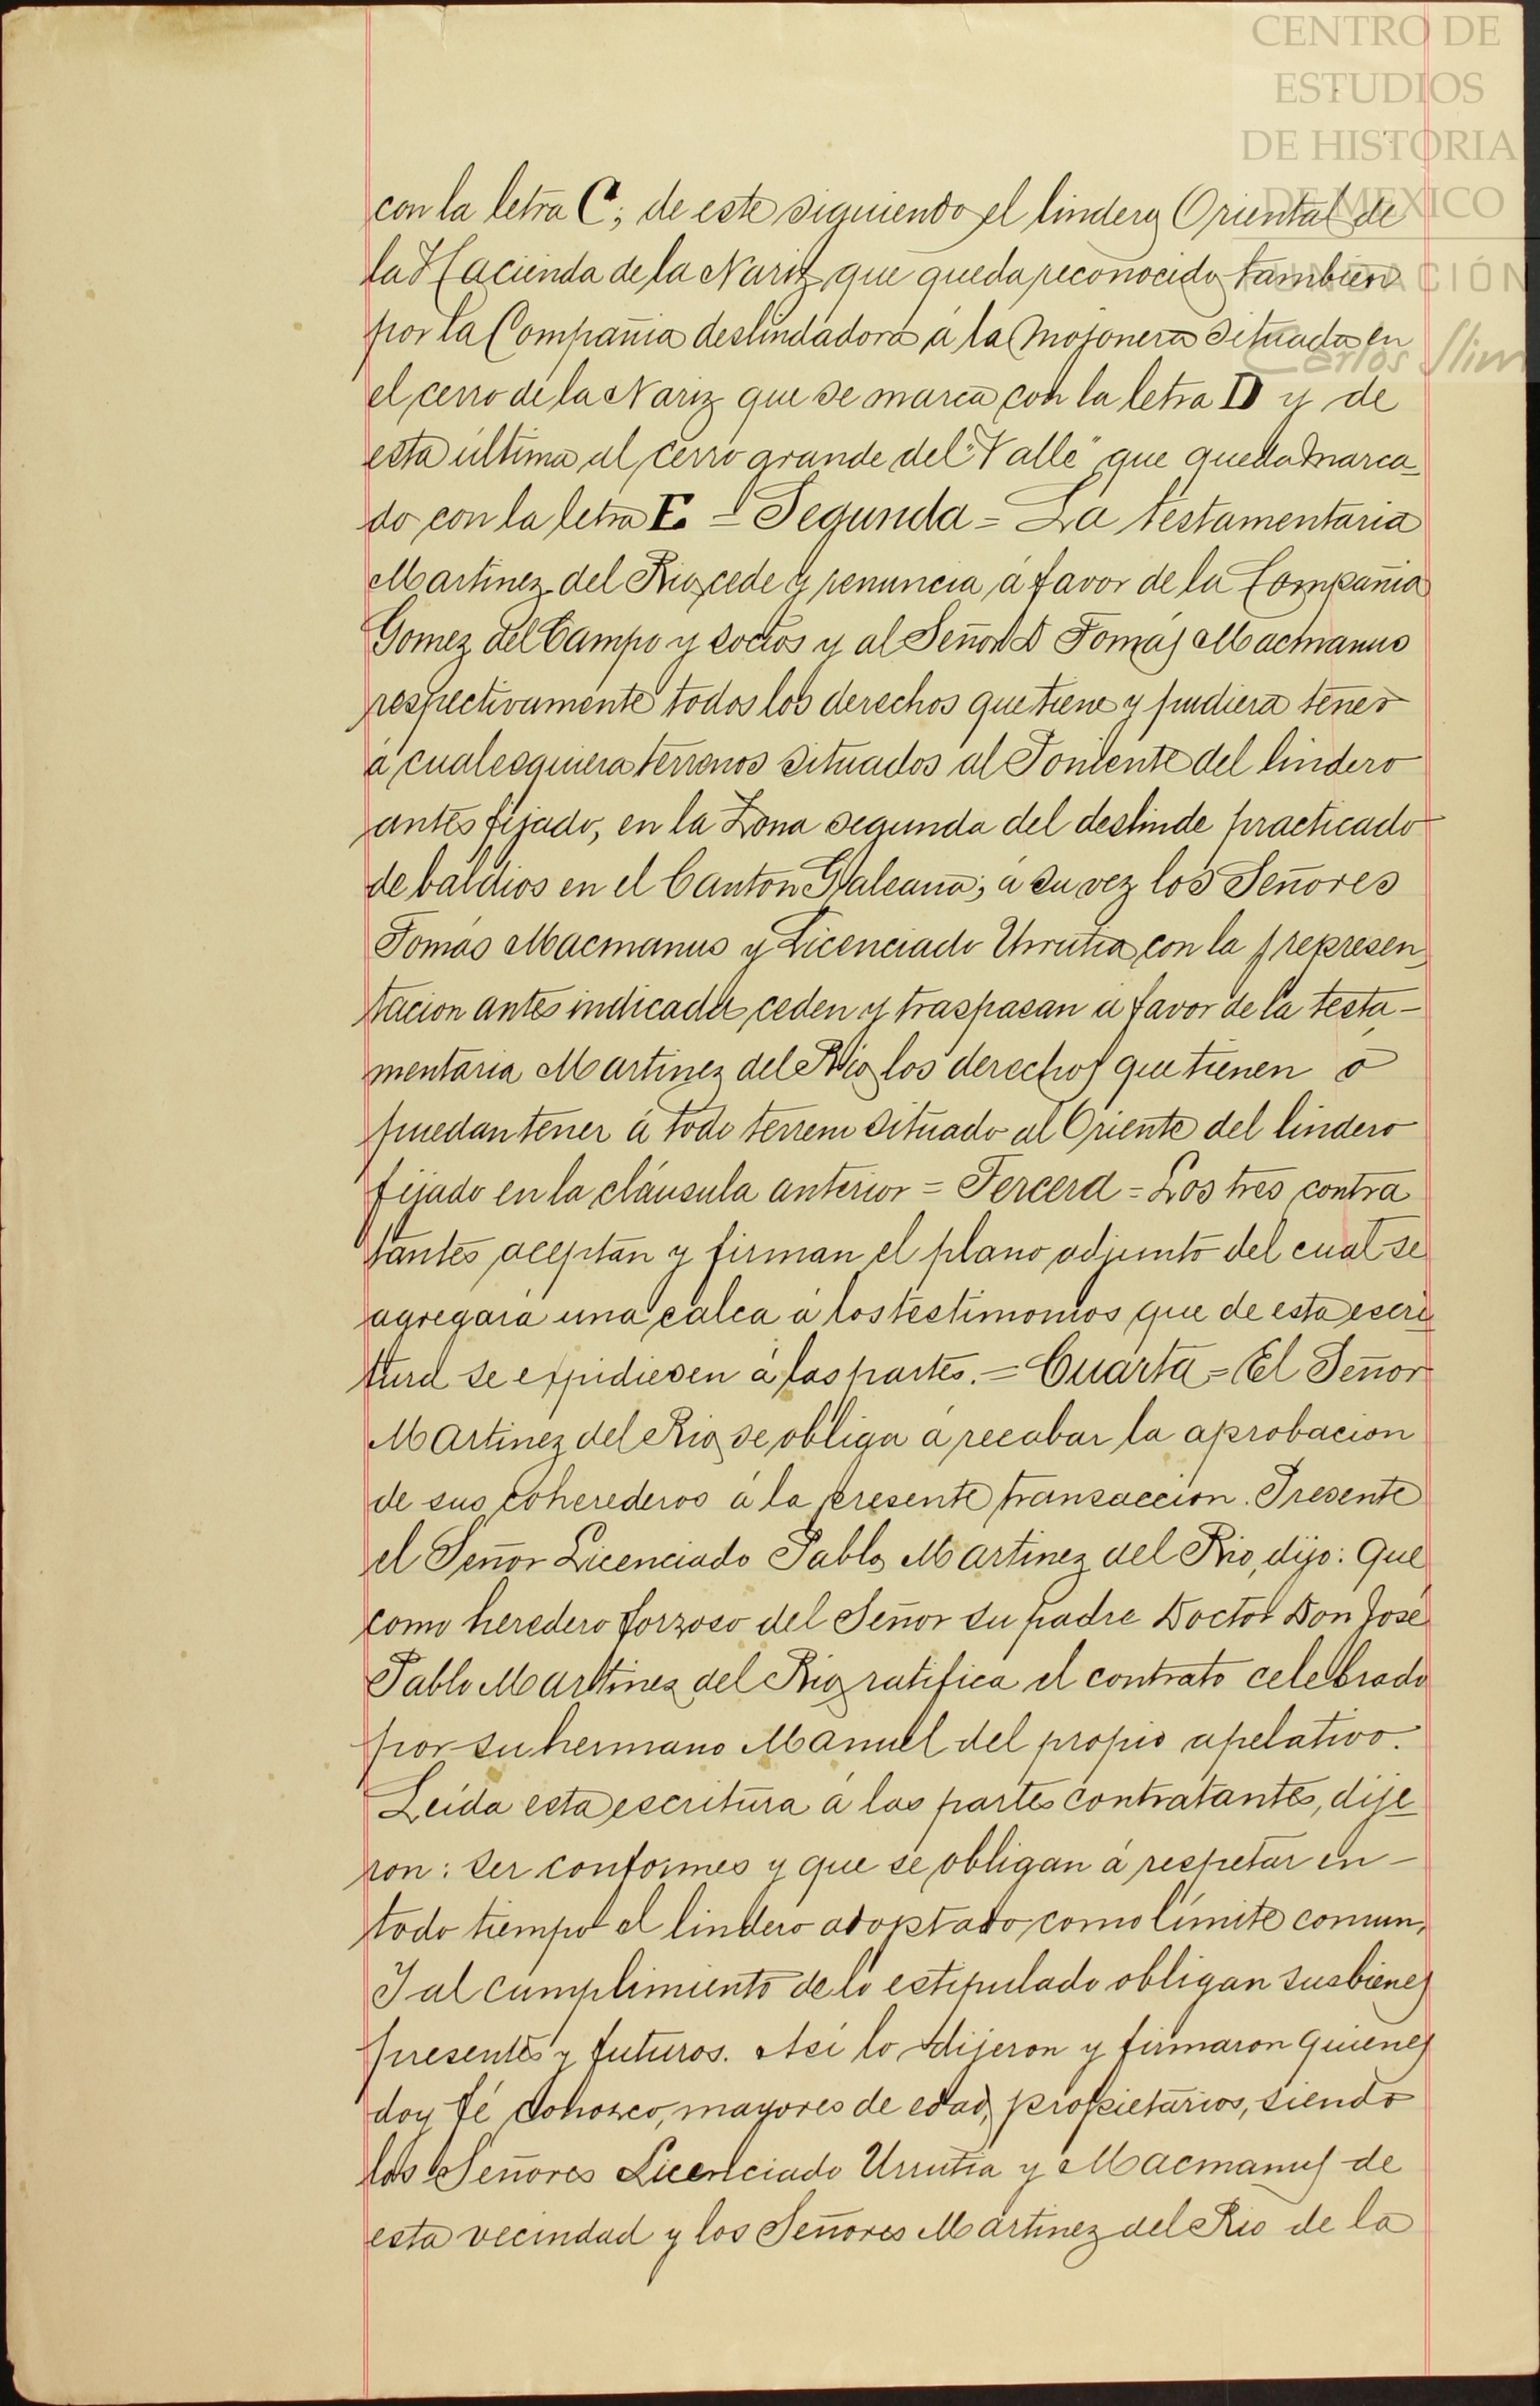 CENTRO DE
ESTUDIOS
DE HISTORIA
DE MEXICO
FUNDACIÓN
Carlos Slim
con la letra C; de este siguiendo el lindero Oriental de
la Hacienda de la Nariz que queda reconocido tambien
por la Compañia deslindadora á la Mojonera situada en
el cerro de la Nariz que se marca con la letra D y de
esta última al cerro grande del "Valle" que queda marca-
do con la letra E. = Segunda = La testamentaria
Martinez del Rio cede y renuncia á favor de la Compañia
Gomez del Campo y socios y al Señor D Tomás Macmanus
respectivamente todos los derechos que tiene y pudiera tener
á cualesquiera terrenos situados al Poniente del lindero
antes fijado, en la Zona segunda del deslinde practicado
de baldios en el Canton Galeana; á su vez los Señores
Tomás Macmanus y Licenciado Urrutia con la represen
tacion antes indicada ceden y traspasan á favor de la testa-
mentaria Martinez del Rio los derechos que tienen ó
puedan tener á todo terreno situado al Oriente del lindero
fijado en la cláusula anterior = Tercera = Los tres contra
tantes aceptan y firman el plano adjunto del cual se
agregara una calca á los testimonios que de esta escri
tura se expidiesen á las partes. = Cuarta = El Señor
Martinez del Rio se obliga á recabar la aprobacion
de sus coherederos á la presente transaccion. Presente
el Señor Licenciado Pablo Martinez del Rio, dijo: Que
como heredero forzoso del Señor su padre Doctor Don José
Pablo Martinez del Rio ratifica el contrato celebrado
por su hermano Manuel del propio apelativo.
Leida esta escritura á las partes contratantes, dije
ron: ser conformes y que se obligan á respetar en-
todo tiempo el lindero adoptado como limite comun,
Y al cumplimiento de lo estipulado obligan sus bienes
presentes y futuros. Asi lo dijeron y firmaron quienes
doy fé conozco, mayores de edad, propietarios, siendo
los Señores Licenciado Urrutia y Macmanus de
esta vecindad y los Señores Martinez del Rio de la